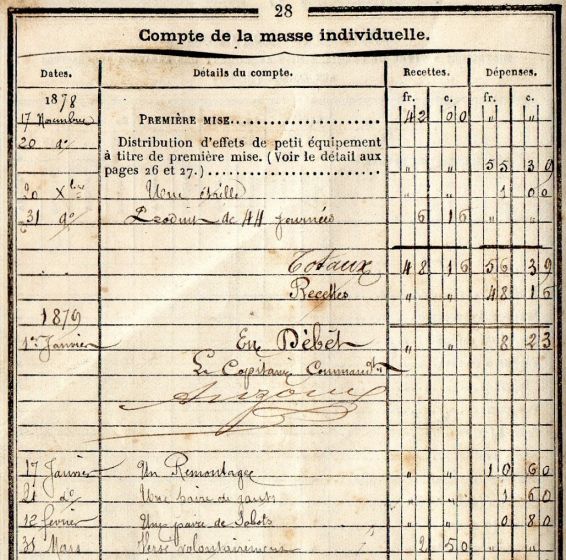 28
Compte de la masse individuelle.
Dates. Détails du compte. Recettes. Dépenses.
fr. c. fr. c.
1878
17 Novembre PREMIÈRE MISE 42 00 " "
20 do Distribution d'effets de petit équipement
à titre de première mise. (Voir le détail aux
pages 26 et 27.) " " 55 39
20 Xbre Une étrille " " 1 00
31 do Produit de 44 journées 6 16 " "
Totaux 48 16 56 39
Recettes " " 48 16
1879
1er Janvier En Débet " " 8 23
Le Capitaine Commandt
17 Janvier Un Remontage " " 10 60
21 do Une paire de gants " " 1 60
12 février Une paire de Sabots " " 0 80
31 Mars Versé volontairement 2 50 " "